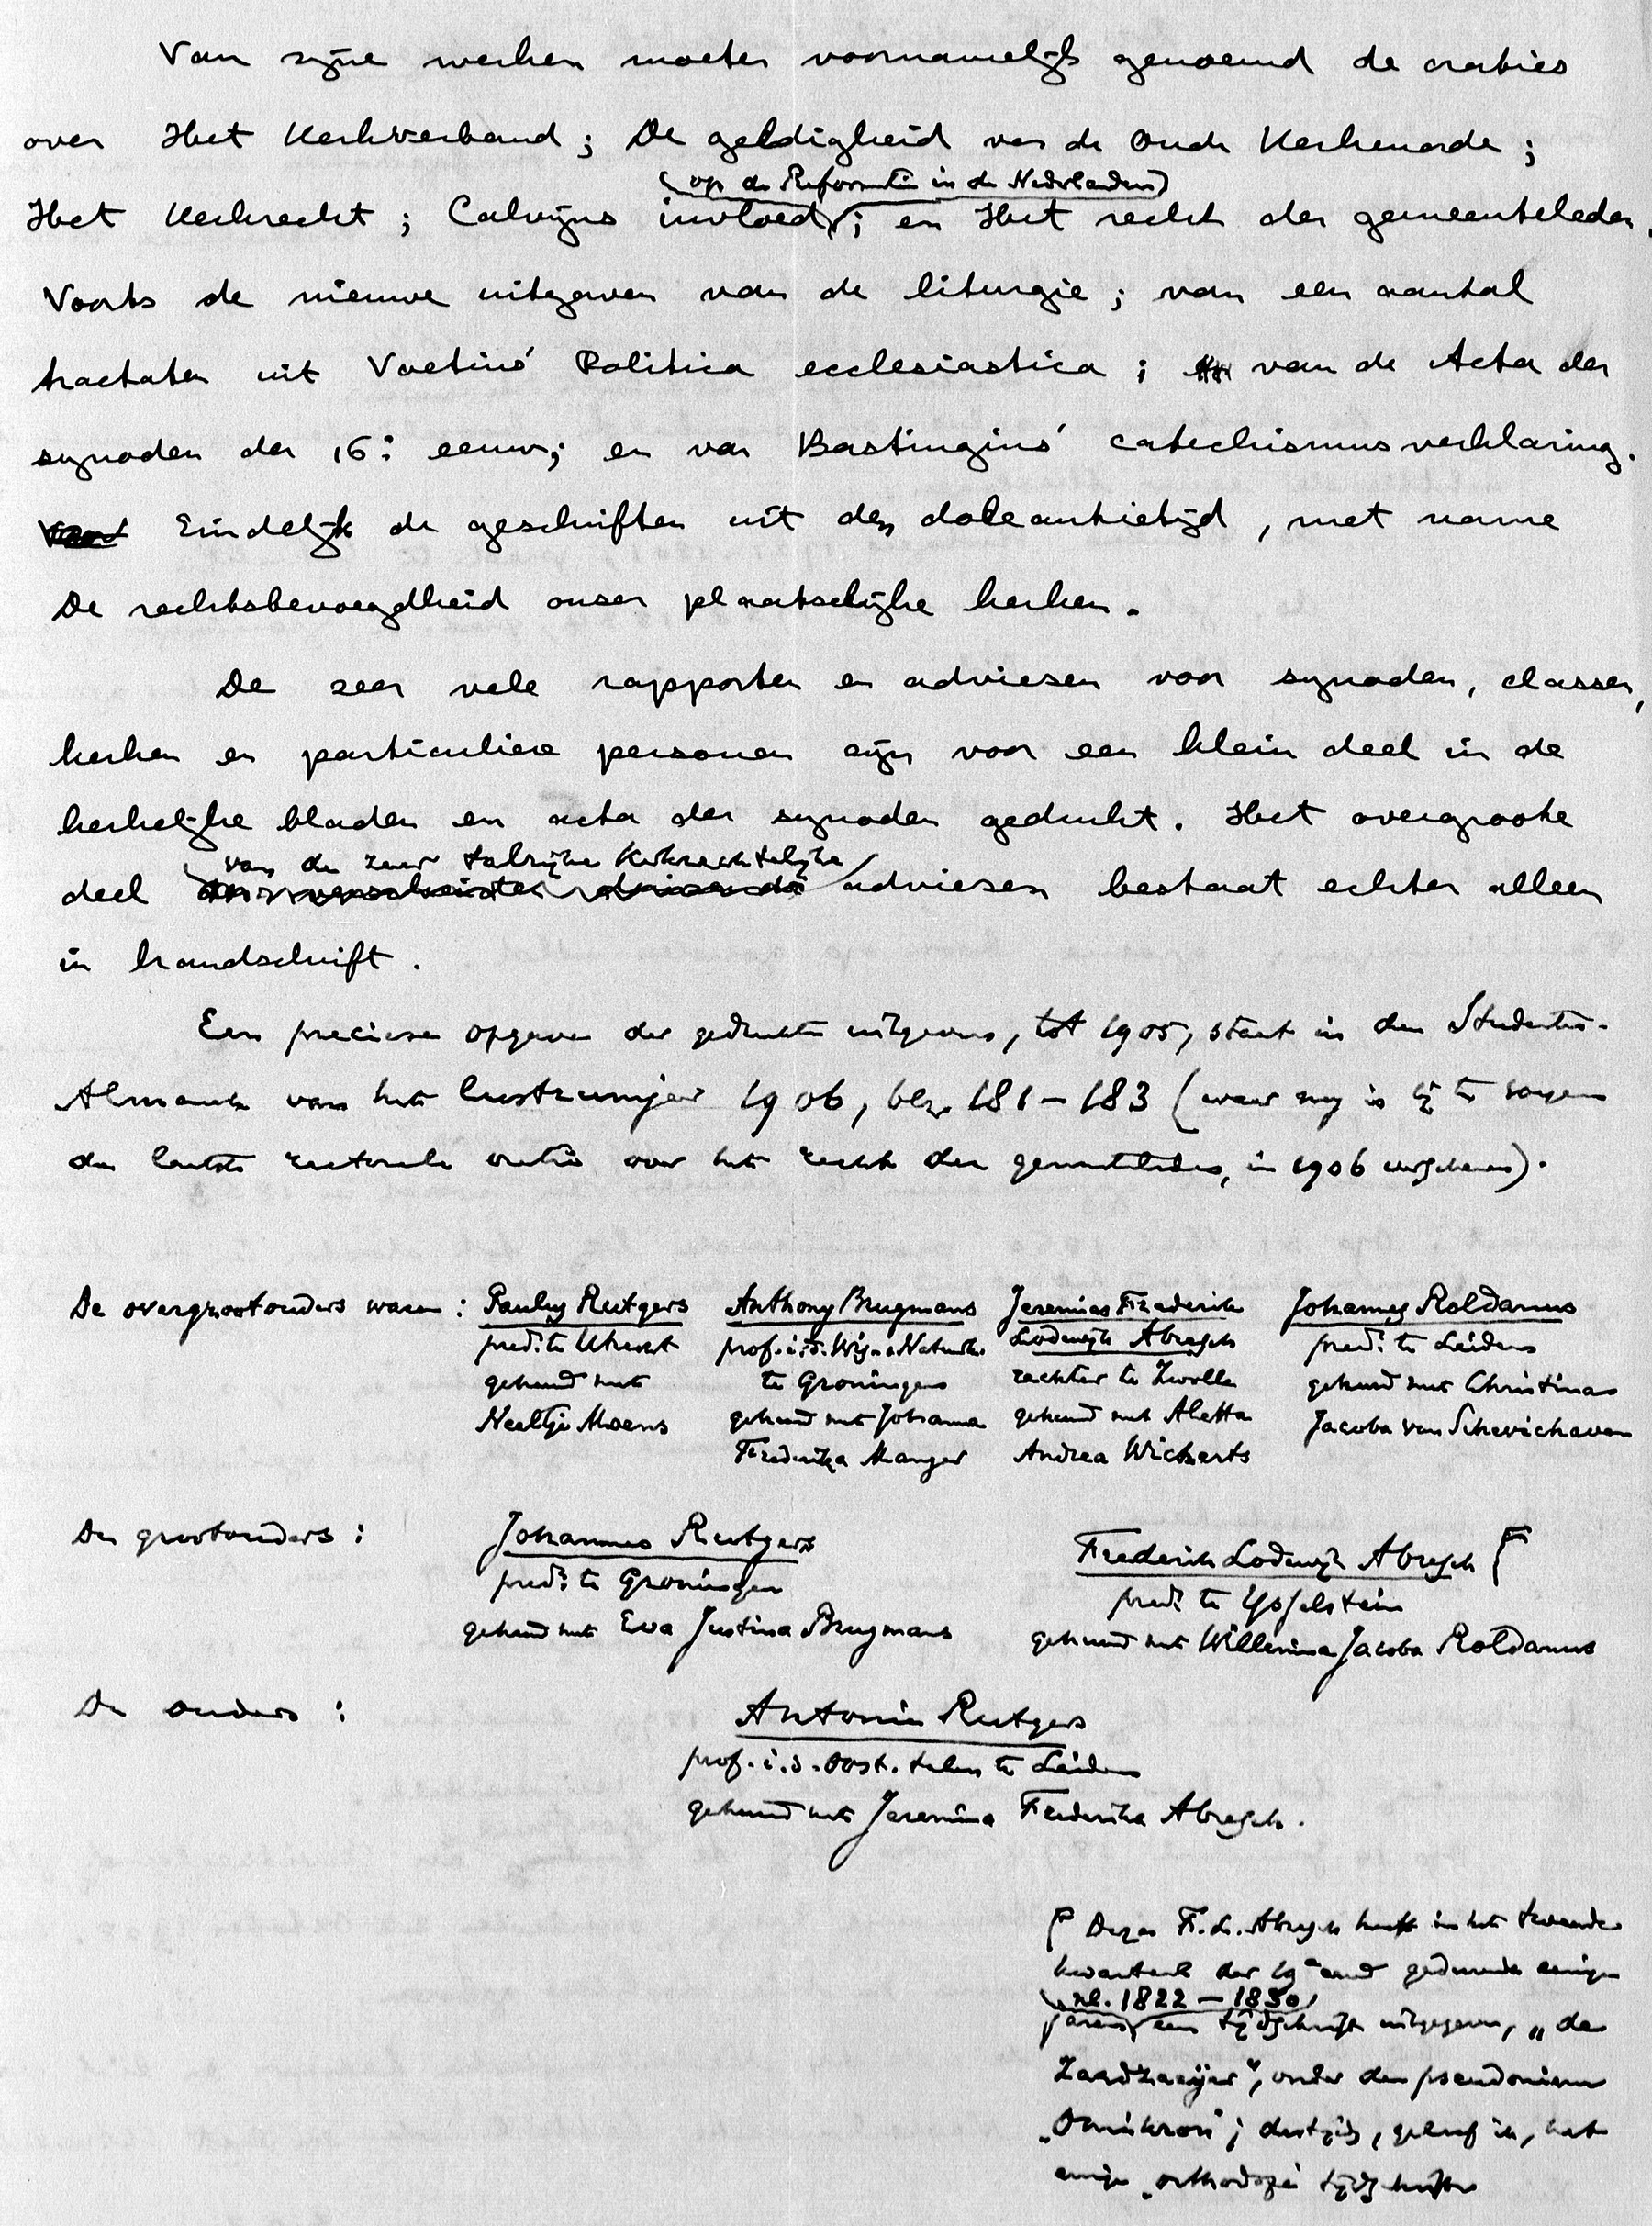 Van zijne werken moeten voornamelijk genoemd de oraties
over Het Kerkverband; De geldigheid van de Oude Kerkenorde;
(op de Reformatie in de Nederlanden)
Het Kerkrecht; Calvijns invloed; en Het recht der gemeenteleden.
Voorts de nieuwe uitgaven van de liturgie; van een aantal
tractaten uit Voetius' Politica ecclesiastica; van de Acta der
synoden der 16e eeuw; en van Bastingius' catechismusverklaring.
Eindelijk de geschriften uit den doleantietijd, met name
De rechtsbevoegdheid onzer plaatselijke kerken.
De zeer vele rapporten en adviezen voor synoden, classen,
kerken en particuliere personen zijn voor een klein deel in de
kerkelijke bladen en acta der synoden gedrukt. Het overgroote
van de zeer talrijke Kerkrechtelijke
deel adviezen bestaat echter alleen
in handschrift.
Een precieze opgave der gedrukte uitgaven, tot 1905, staat in den Studenten-
Almanak van het lustrumjaar 1906, blz. 181-183 (waar nog is bij te voegen
de laatste rectorale oratie over het recht der gemeenteleden, in 1906 verschenen).
De overgrootouders waren: Paulus Rutgers Anthony Brugmans Jeremias Frederik Johannes Roldanus
pred. te Utrecht prof. i.d. Wijs. & Natuurk. Lodewijk Abresch pred. te Leiden
gehuwd met te Groningen rechter te Zwolle gehuwd met Christina
Neeltje Moens gehuwd met Johanna gehuwd met Aletta Jacoba van Schevichaven
Frederika Manger Andrea Wicherts
De grootouders: Johannes Rutgers Frederik Lodewijk Abresch
pred. te Groningen pred. te IJsselstein
gehuwd met Eva Justina Brugmans gehuwd met Willemina Jacoba Roldanus
De ouders: Antonie Rutgers
prof. i.d. Oost. talen te Leiden
gehuwd met Jeremina Frederika Abresch.
Deze F.L. Abresch heeft in het tweede
kwartaal der 19e eeuw gedurende eenige
nl. 1822-1830
jaren een tijdschrift uitgegeven, „de
Zaadzaaijer", onder den pseudoniem
„Omikron"; destijds, geloof ik, het
eenige „orthodoxe" tijdschrift